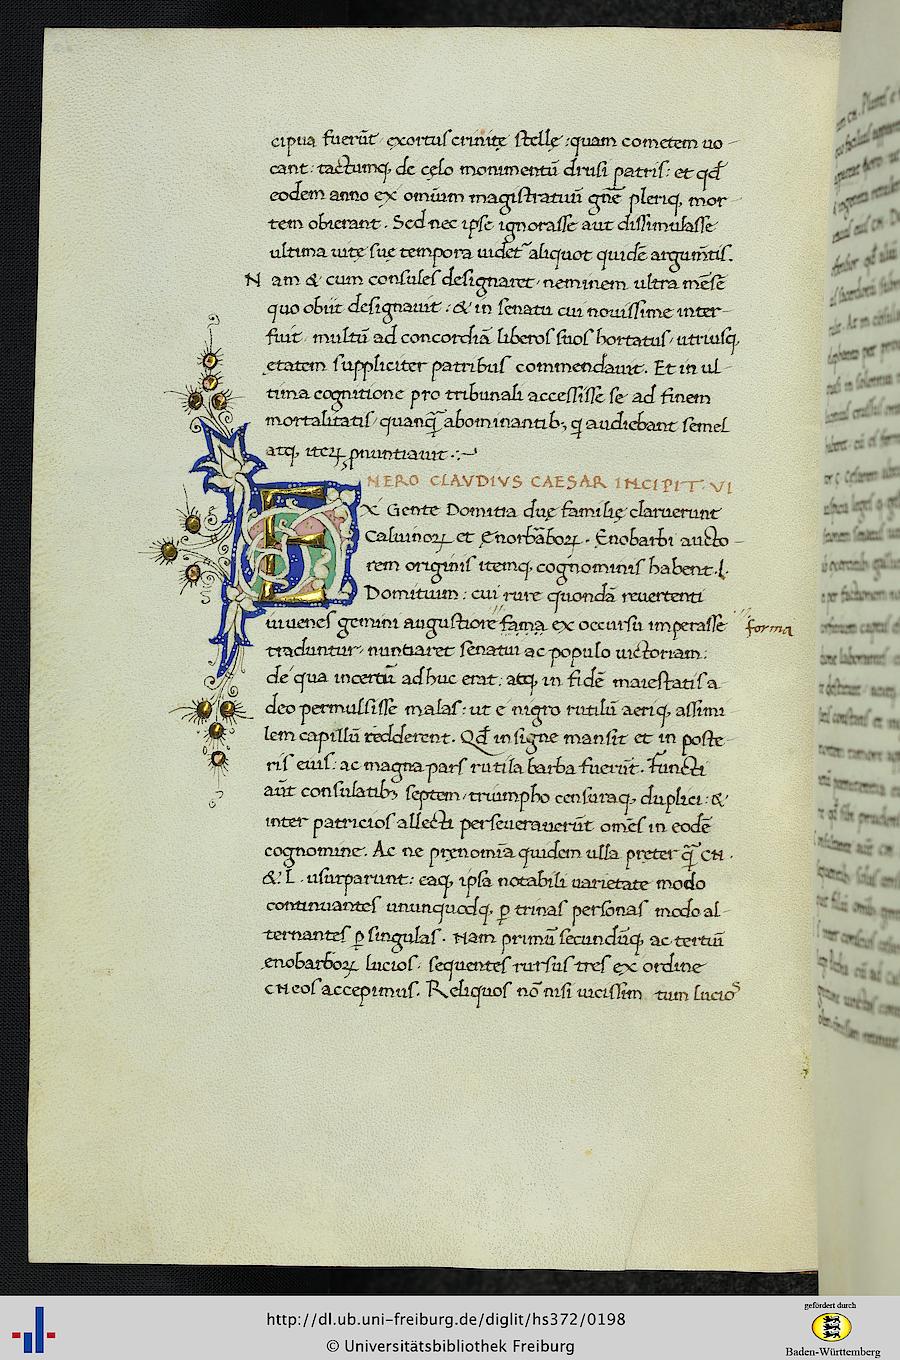 cipua fuerūt exortus crinitę stellę : quam cometem uo
cant : tactumq, de cęlo monumentū drusi patris : et qđ
eodem anno ex omnium magistratuū gn̄e pleriq, mor
tem obierant . Sed nec ipse ignorasse aut dissimulasse
ultima uitę suę tempora uidet aliquot quidē argum̄tis.
N am & cum consules designaret neminem ultra mēsē
quo obiit designauit : & in senatu cui nouissime inter
fuit multū ad concordiā liberos suos hortatus utriusq,
etatem suppliciter patribus commendauit . Et in ul
tima cognitione pro tribunali accessisse se ad finem
mortalitatis quanq̄ abominantib; q audiebant semel
atq, iteꝝ pnuntiauit .:~
NERO CLAVDIVS CAESAR INCIPIT VI
E X Gente Domitia due familię claruerunt
Calvinoꝝ et Enorbāboꝝ . Enobarbi aucto
rem originis itemq, cognominis habent .L.
Domitium : cui rure quondā reuertenti
iuuenes gemini augustiore fama ex occursu imperasse
forma
traduntur nuntiaret senatui ac populo uictoriam :
dé qua incertū adhuc erat : atq, in fidē maiestatis a
deo permulsisse malas : ut e nigro rutilū aeriq, assimi
lem capillū redderent . Qđ insigne mansit et in poste
ris eius : ac magna pars rutila barba fuerūt . Functi
aūt consulatib; septem triumpho censuraq, duplici : &
inter patricios allecti perseuerauerūt omēs in eodē
cognomine . Ac ne pręnomīa quidem ulla pręter q̄ CN .
& L . usurparunt : eaq, ipsa notabili uarietate modo
continuantes ununquodq, ꝑ trinas personas modo al
ternantes ꝑ singulas . Nam primū secundūq, ac tertiū
enobarboꝝ lucios . sequentes rursus tres ex ordine
CNeos accepimus . Reliquos nō nisi uicissim tum lucios
http://dl.ub.uni-freiburg.de/diglit/hs372/0198
© Universitätsbibliothek Freiburg
gefördert durch
Baden-Württemberg